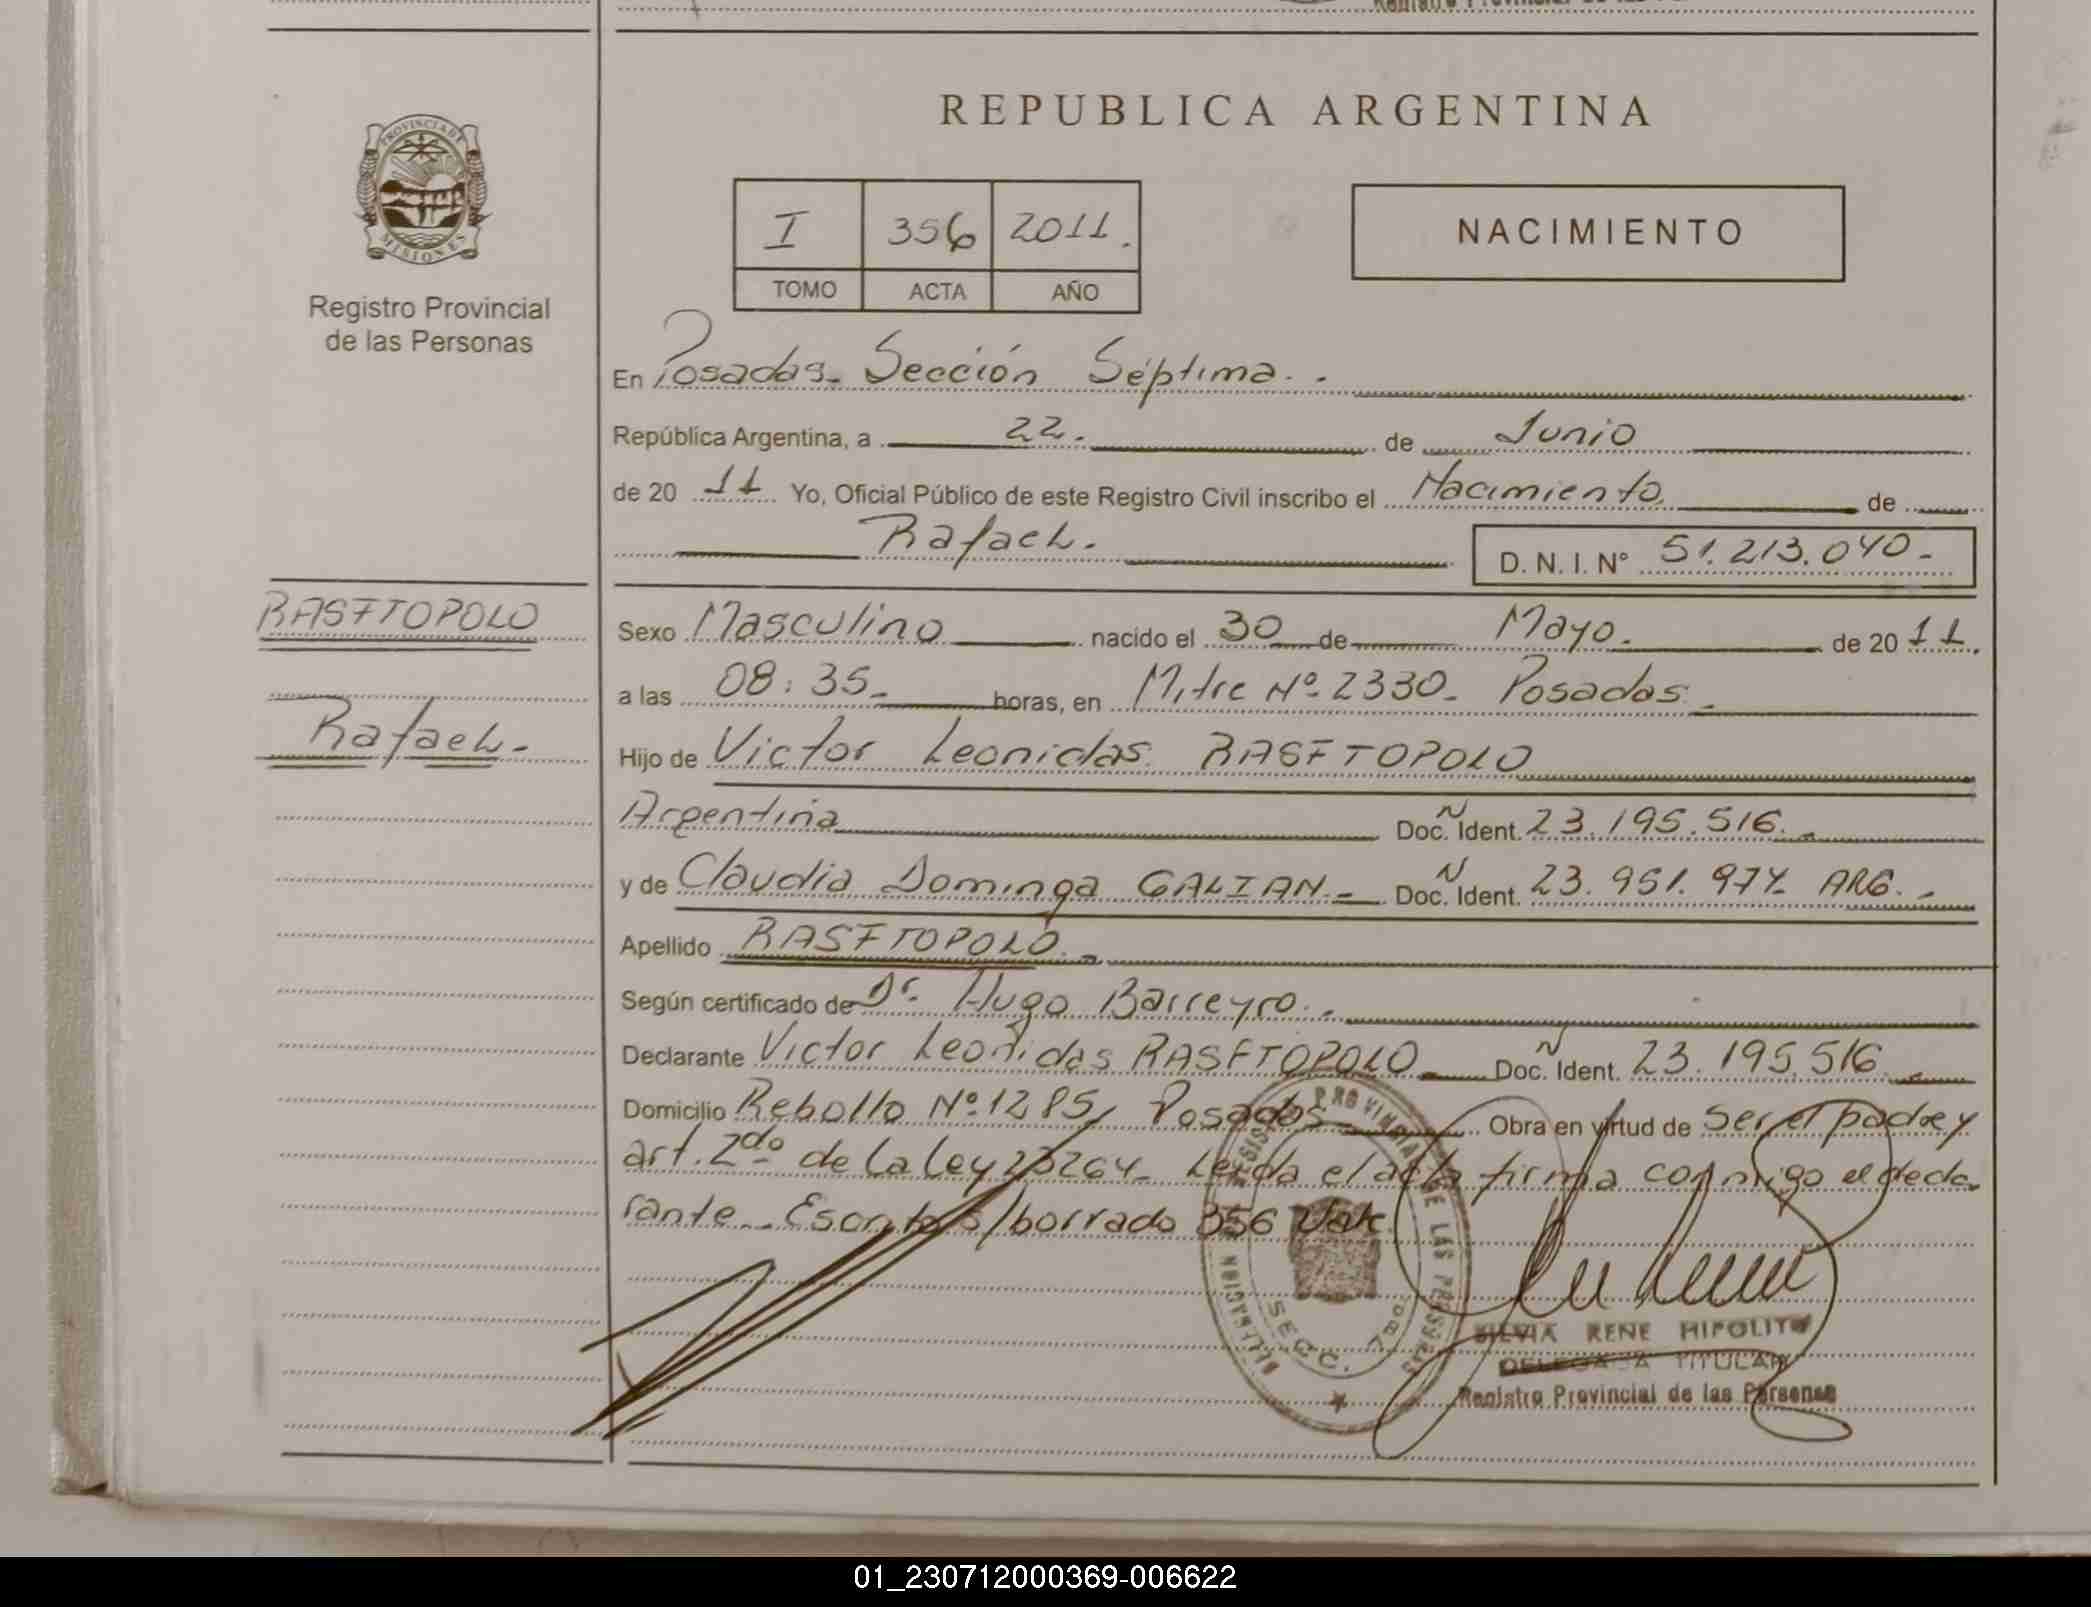 REPUBLICA ARGENTINA
PROVINCIA DE
MISIONES
Registro Provincial
de las Personas
I 356 2011.
TOMO ACTA AÑO
NACIMIENTO
En Posadas. Sección Séptima.
República Argentina, a 22. de Junio
de 20 11 Yo, Oficial Público de este Registro Civil inscribo el Nacimiento. de
Rafael. D. N. I. Nº 51.213.040.-
RASFTOPOLO
Sexo Masculino nacido el 30 de Mayo. de 20 11.
a las 08:35. horas, en Mitre Nº 2330. Posadas.
Rafael.
Hijo de Victor Leonidas RASFTOPOLO
Argentina Doc. Ident. 23.195.516.
y de Claudia Dominga GALIAN. Doc. Ident. 23.951.974. ARG.
Apellido RASFTOPOLO.
Según certificado de Dr. Hugo Barreyro.
Declarante Victor Leonidas RASFTOPOLO Doc. Ident. 23.195.516.
Domicilio Rebollo Nº 1285, Posadas Obra en virtud de ser el padre y
art. 2do de la Ley 23264. Leida el acta firma conmigo el decla
rante. Escrito s/borrado 356 Vale.
DELEGACION REGISTRO PROVINCIAL DE LAS PERSONAS
SECC. 7ma
SILVIA RENE HIPOLITO
DELEGADA TITULAR
Registro Provincial de las Personas
01_230712000369-006622